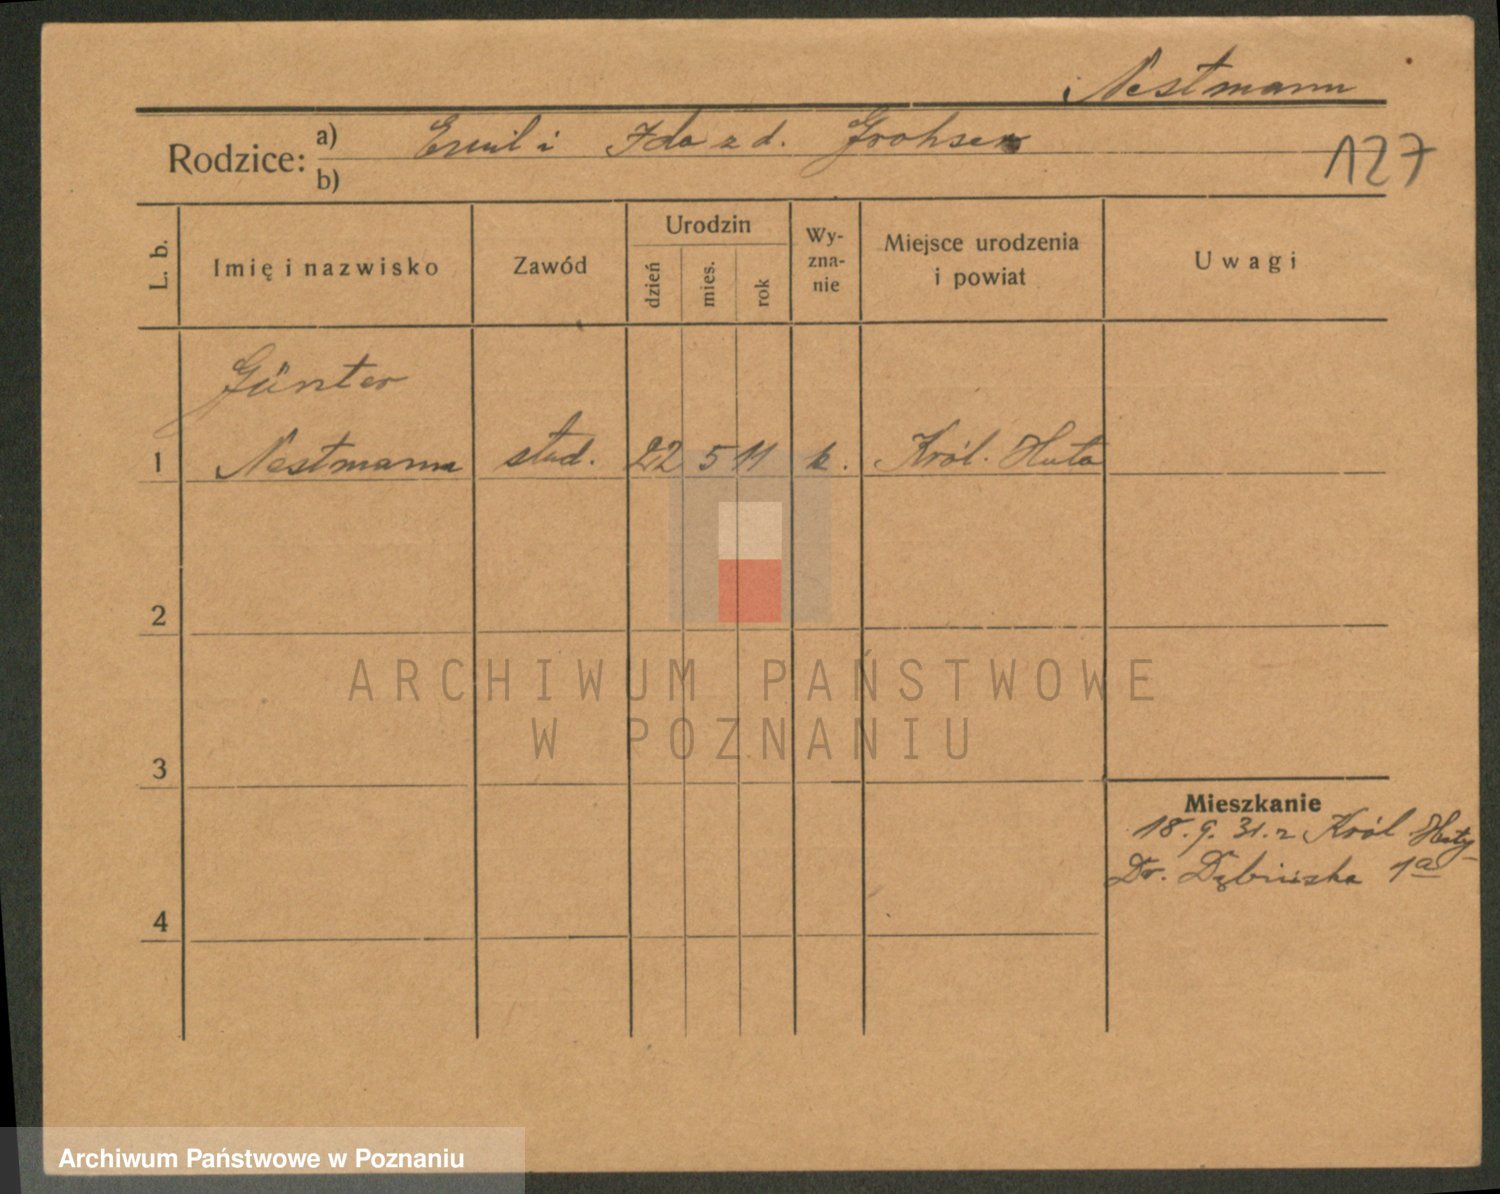 Nestmann
Rodzice: a) Emil i Ida z d. Grohser
b)
127
L. b.
Imię i nazwisko
Zawód
Urodzin
dzień
mies.
rok
Wy-
zna-
nie
Miejsce urodzenia
i powiat
Uwagi
Günter
1 Nestmann stud. 22 5 11 k. Król. Huta
2
3
4
Mieszkanie
18. 9. 31. z Król Huty
Dr. Dąbińska 1a
ARCHIWUM PAŃSTWOWE
W POZNANIU
Archiwum Państwowe w Poznaniu